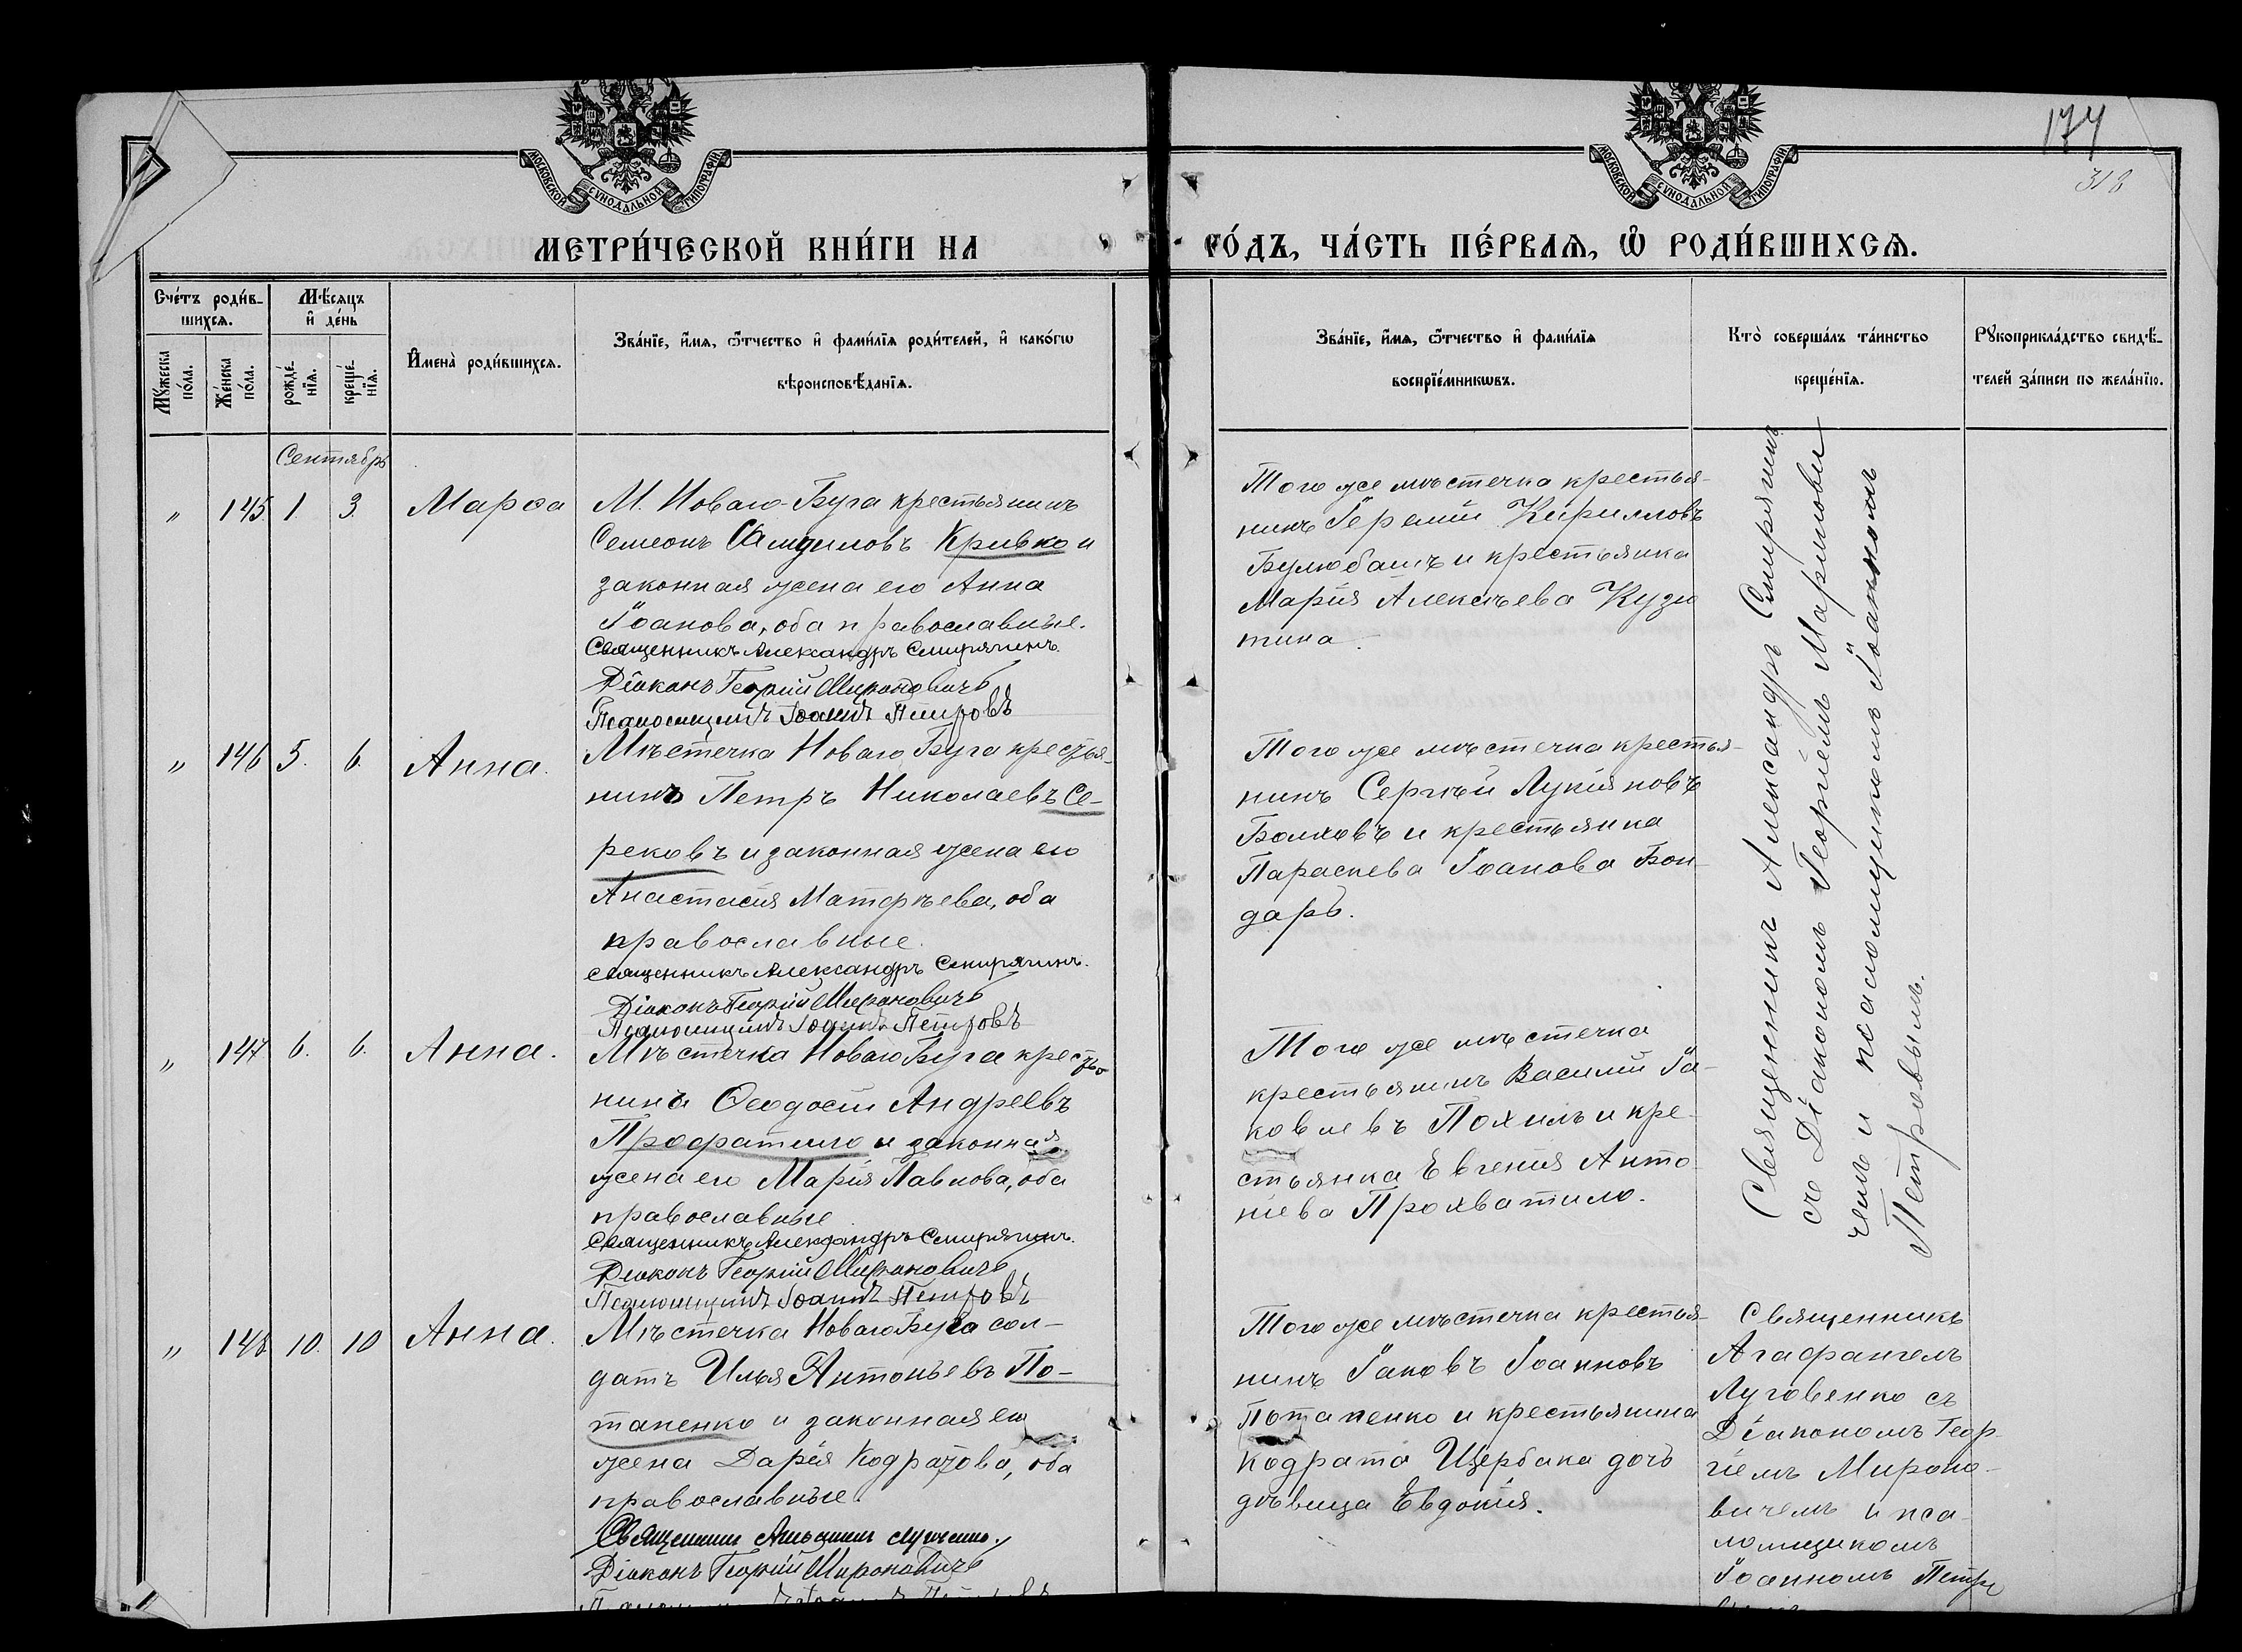 МОСКОВСКОЙ СѴНОДАЛЬНОЙ ТИПОГРАФІИ
МОСКОВСКОЙ СѴНОДАЛЬНОЙ ТИПОГРАФІИ
174
318
МЕТРИ́ЧЕСКОЙ КНИ́ГИ НА
ГО́ДЪ, ЧА́СТЬ ПЕ́РВАѦ, Ѡ РОДИ́ВШИХСѦ.
Сче́тъ роди́в-
шихсѧ.
Мѣ́сѧцъ
и де́нь
Мꙋ́жеска
по́ла.
Же́нска
по́ла.
рожде́-
нїѧ.
креще́-
нїѧ.
Имена̀ роди́вшихсѧ.
Зва́нїе, и́мѧ, ѻ́тчество и фами́лїѧ роди́телей, и како́гѡ
вѣроисповѣ́данїѧ.
Зва́нїе, и́мѧ, ѻ́тчество и фами́лїѧ
воспрїе́мникѡвъ.
Кто̀ соверша́лъ та́инство
креще́нїѧ.
Рꙋкоприкла́дство свидѣ́-
телей за́писи по жела́нїю.
Сентябрь
" 145 1. 3. Марѳа
М. Новаго-Буга крестьянинъ
Семеонъ Самуиловъ Кривко и
законная жена его Анна
Іоанова, оба православные.
Священникъ Александръ Смирягинъ.
Діаконъ Георгій Мироновичъ
Псаломщикъ Іоаннъ Петровъ
Того же мѣстечка крестья-
нинъ Іеремій Кирилловъ
Булюбашъ и крестьянка
Марія Алексѣева Кузю
тина.
" 146 5. 6. Анна.
Мѣстечка Новаго Буга крестья-
нинъ Петръ Николаевъ Се-
рековъ и законная жена его
Анастасія Матфѣева, оба
православные.
Священникъ Александръ Смирягинъ.
Діаконъ Георгій Мироновичъ
Псаломщикъ Іоаннъ Петровъ
Того же мѣстечка крестья-
нинъ Сергѣй Лукіяновъ
Болховъ и крестьянка
Параскева Іоанова Бон-
дарь.
" 147 6. 6. Анна.
Мѣстечка Новаго Буга крестья
нинъ Ѳеодосій Андреевъ
Профатило и законная
жена его Марія Павлова, оба
православные
Священникъ Александръ Смирягинъ.
Діаконъ Георгій Мироновичъ
Псаломщикъ Іоаннъ Петровъ
Того же мѣстечка
крестьянинъ Василій Іа-
ковлевъ Похилъ и кре-
стьянка Евгенія Анто-
ніева Прохватило.
Священникъ Александръ Смирягинъ
съ Діакономъ Георгіемъ Миронови
чемъ и псаломщикомъ Іоанномъ
Петровымъ.
" 148 10. 10 Анна.
Мѣстечка Новаго Буга сол-
датъ Илья Антоньевъ По-
тапенко и законная его
жена Дарія Кодратова, оба
православные.
Священникъ
Діаконъ Георгій Мироновичъ
Того же мѣстечка крестья-
нинъ Іаковъ Іоанновъ
Потапенко и крестьянина
Кодрата Щербака дочь
дѣвица Евдокія.
Священникъ
Агафангелъ
Луговенко съ
Діакономъ Геор-
гіемъ Мироно-
вичемъ и пса-
ломщикомъ
Іоанномъ Петро